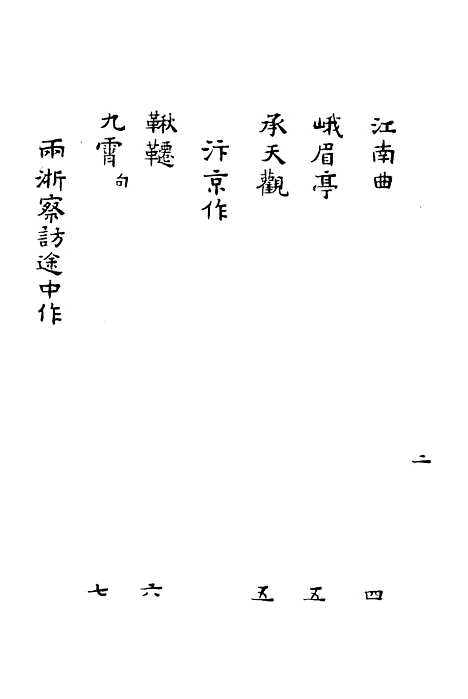 二
江南曲 四
峨眉亭 五
承天觀 五
汴京作
鞦韆 六
九霄句 七
兩浙察訪途中作